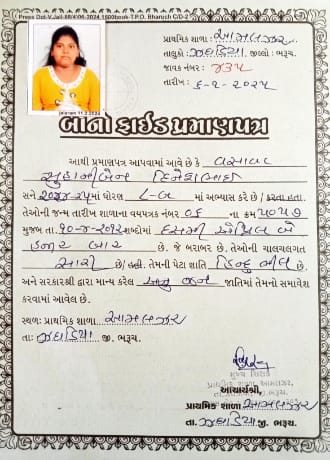 Press Dot-V.Jail-88/4/06-2024,1500book-T.P.O. Bharuch C/D-2
પ્રાથમિક શાળા : આમલઝર
તાલુકો : ઝઘડિયા જીલ્લો : ભરૂચ.
જાવક નંબર : ૪૩૫
તારીખ : ૬-૧-૨૦૨૫
બોનો ફાઈડ પ્રમાણપત્ર
આથી પ્રમાણપત્ર આપવામાં આવે છે કે વસાવા
સુહાનીબેન દિનેશભાઈ
સને ૨૦૨૪-૨૫માં ધોરણ ૮-બ માં અભ્યાસ કરે છે / કરતા હતા.
તેઓની જન્મ તારીખ શાળાના વયપત્રક નંબર ૦૬ ના ક્રમ ૫૦૫૭
મુજબ તા. ૧૦-૪-૨૦૧૨ શબ્દોમાં દસમી એપ્રિલ બે
હજાર બાર છે. જે બરાબર છે. તેઓની ચાલચલગત
સારી છે / હતી. તેમની પેટા જ્ઞાતિ હિન્દુ ભીલ છે.
અને સરકારશ્રી દ્વારા માન્ય કરેલ અનુ જન જાતિમાં તેમનો સમાવેશ
કરવામાં આવેલ છે.
સ્થળ: પ્રાથમિક શાળા આમલઝર
તા: ઝઘડિયા જી. ભરૂચ.
મુખ્ય શિક્ષક
પ્રાથમિક શાળા આમલઝર
આચાર્યશ્રી,
પ્રાથમિક શાળા આમલઝર
તા. ઝઘડિયા જી. ભરૂચ.